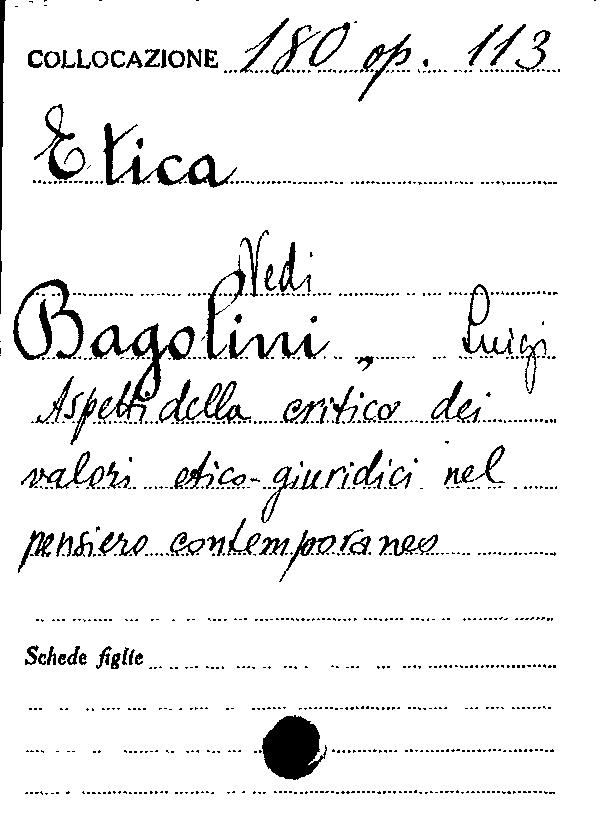 COLLOCAZIONE 180 op. 113
Etica
Vedi
Bagolini, Luigi
Aspetti della critica dei
valori etico-giuridici nel
pensiero contemporaneo
Schede figlie